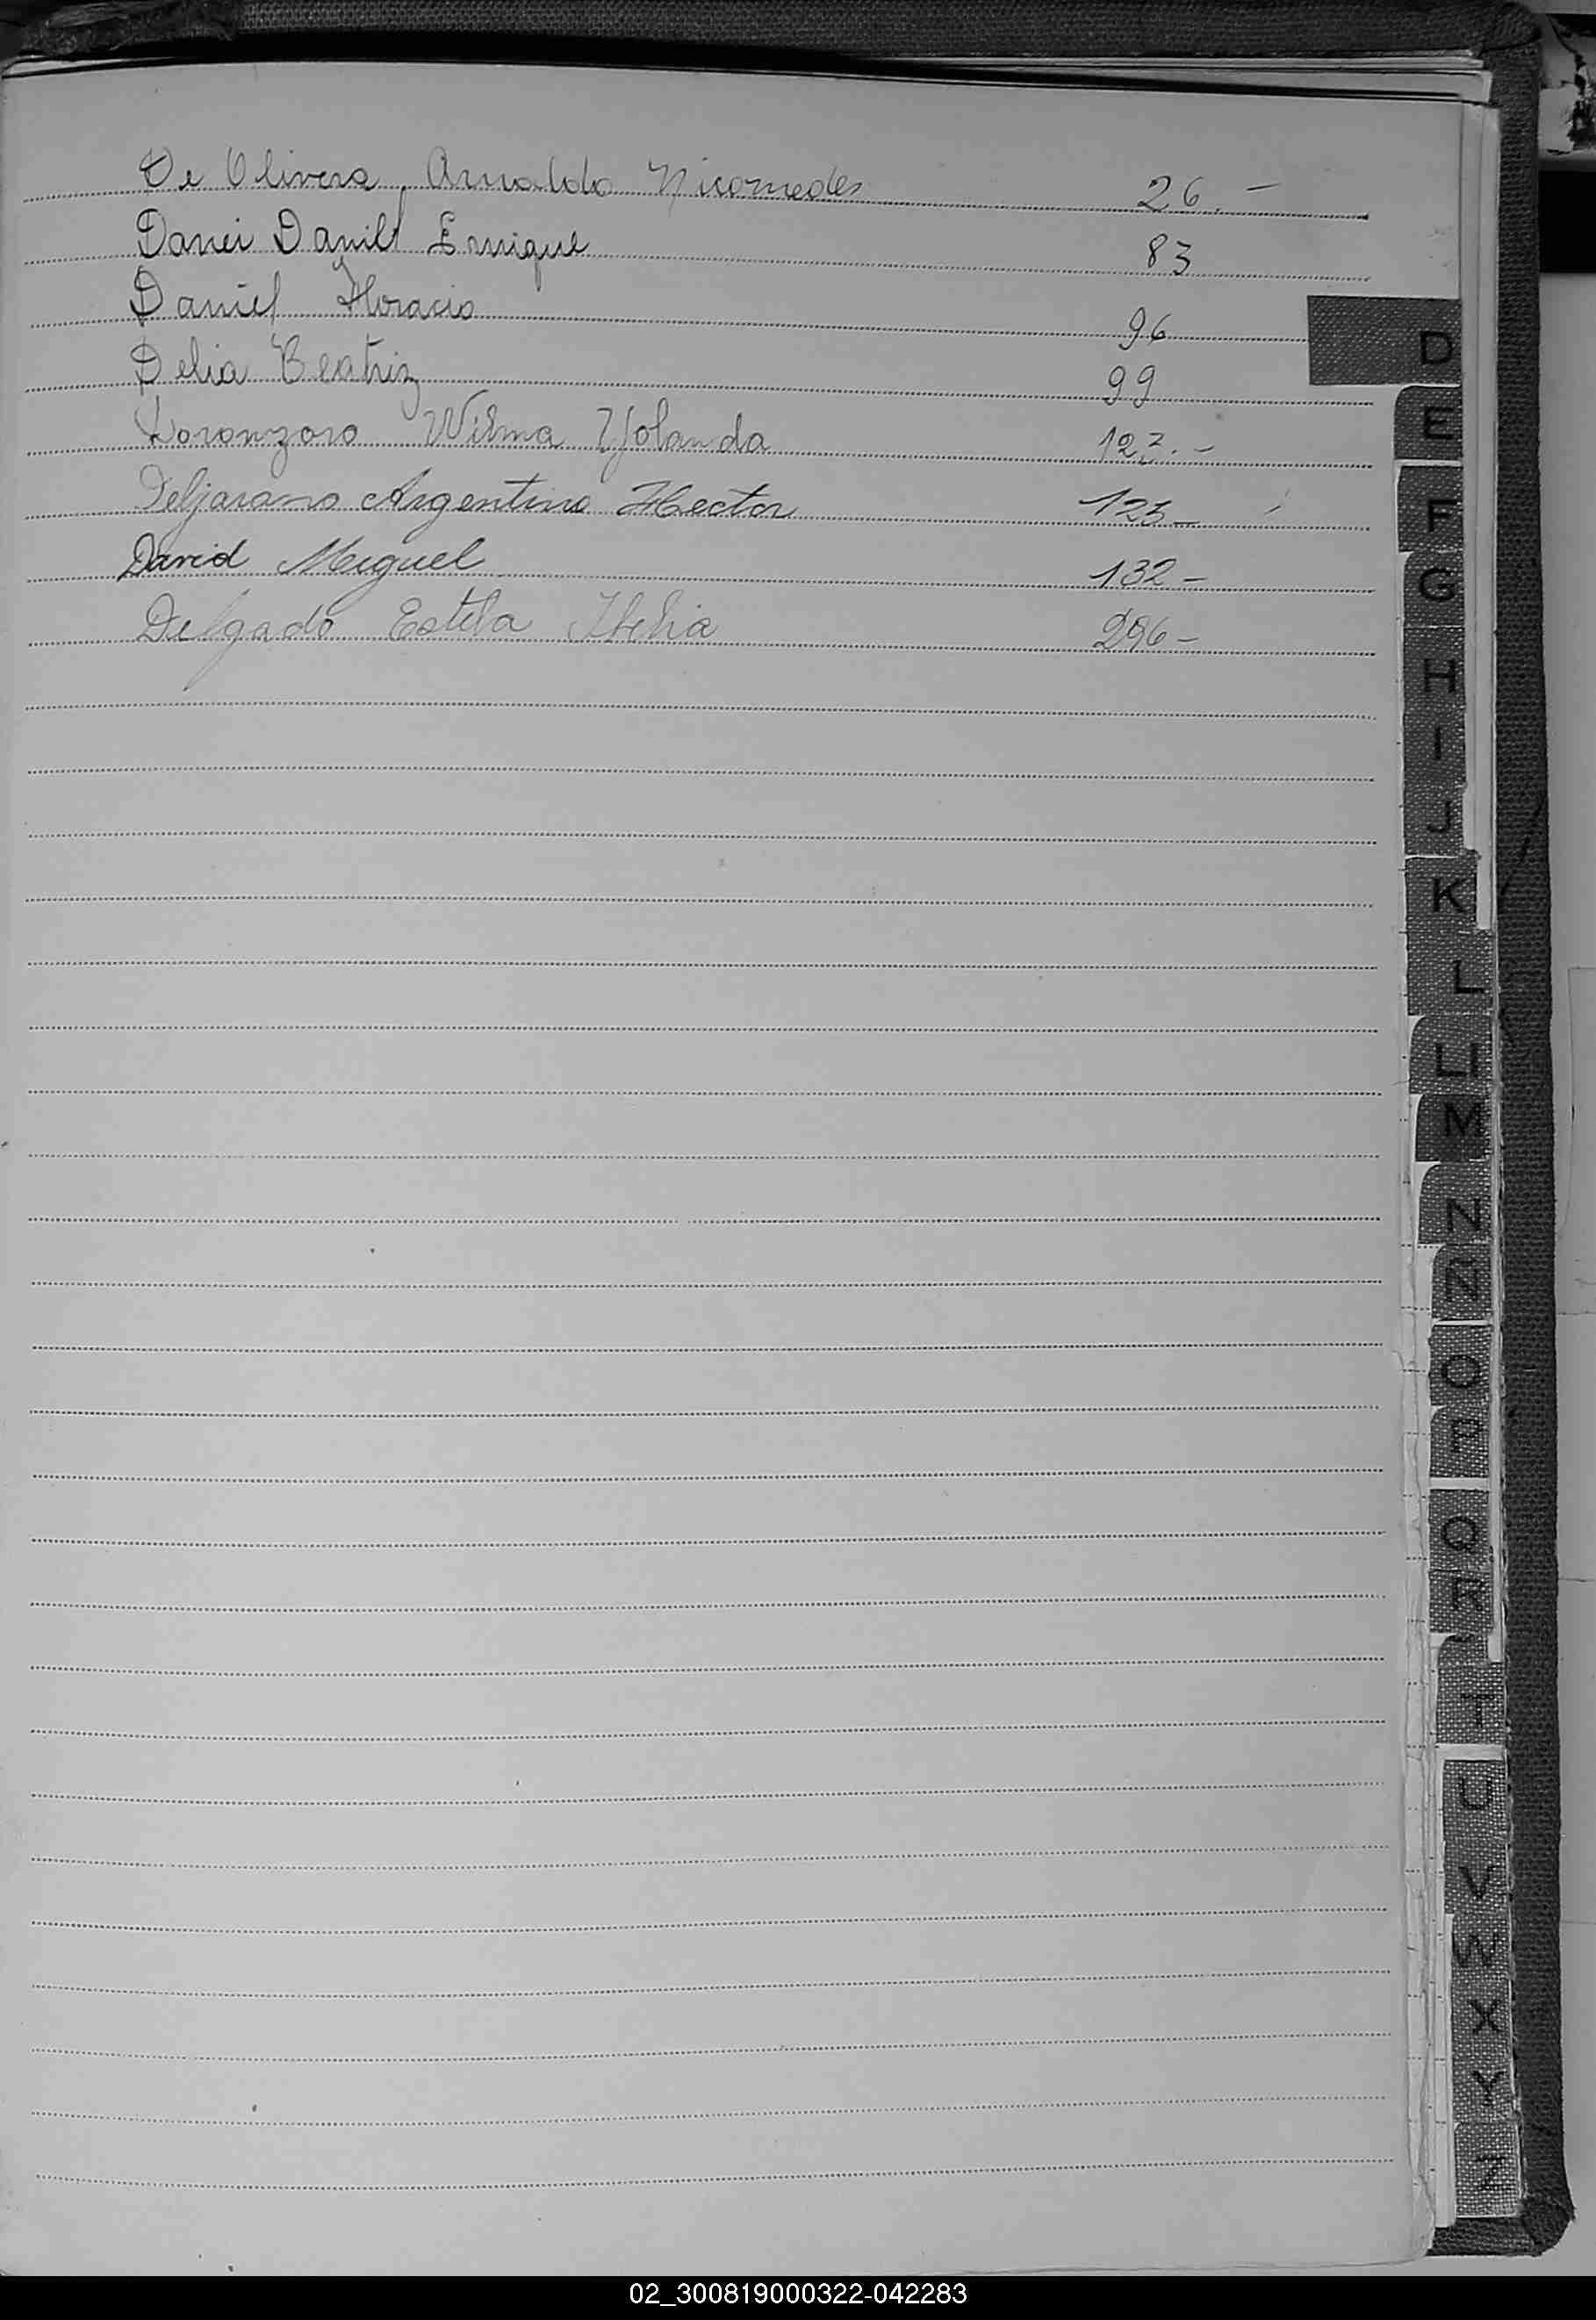 De Olivera, Arnaldo Nicomedes 26.-
Danei Daniel Enrique 83
Daniel Horacio 96
Delia Beatriz 99
Doronzoro Wilma Yolanda 127.-
Deljarano Argentino Hector 125-
David Miguel 132-
Delgado Estela 296-
D
E
F
G
H
I
J
K
L
Ll
M
N
Ñ
O
P
Q
R
T
U
V
W
X
Y
Z
02_300819000322-042283